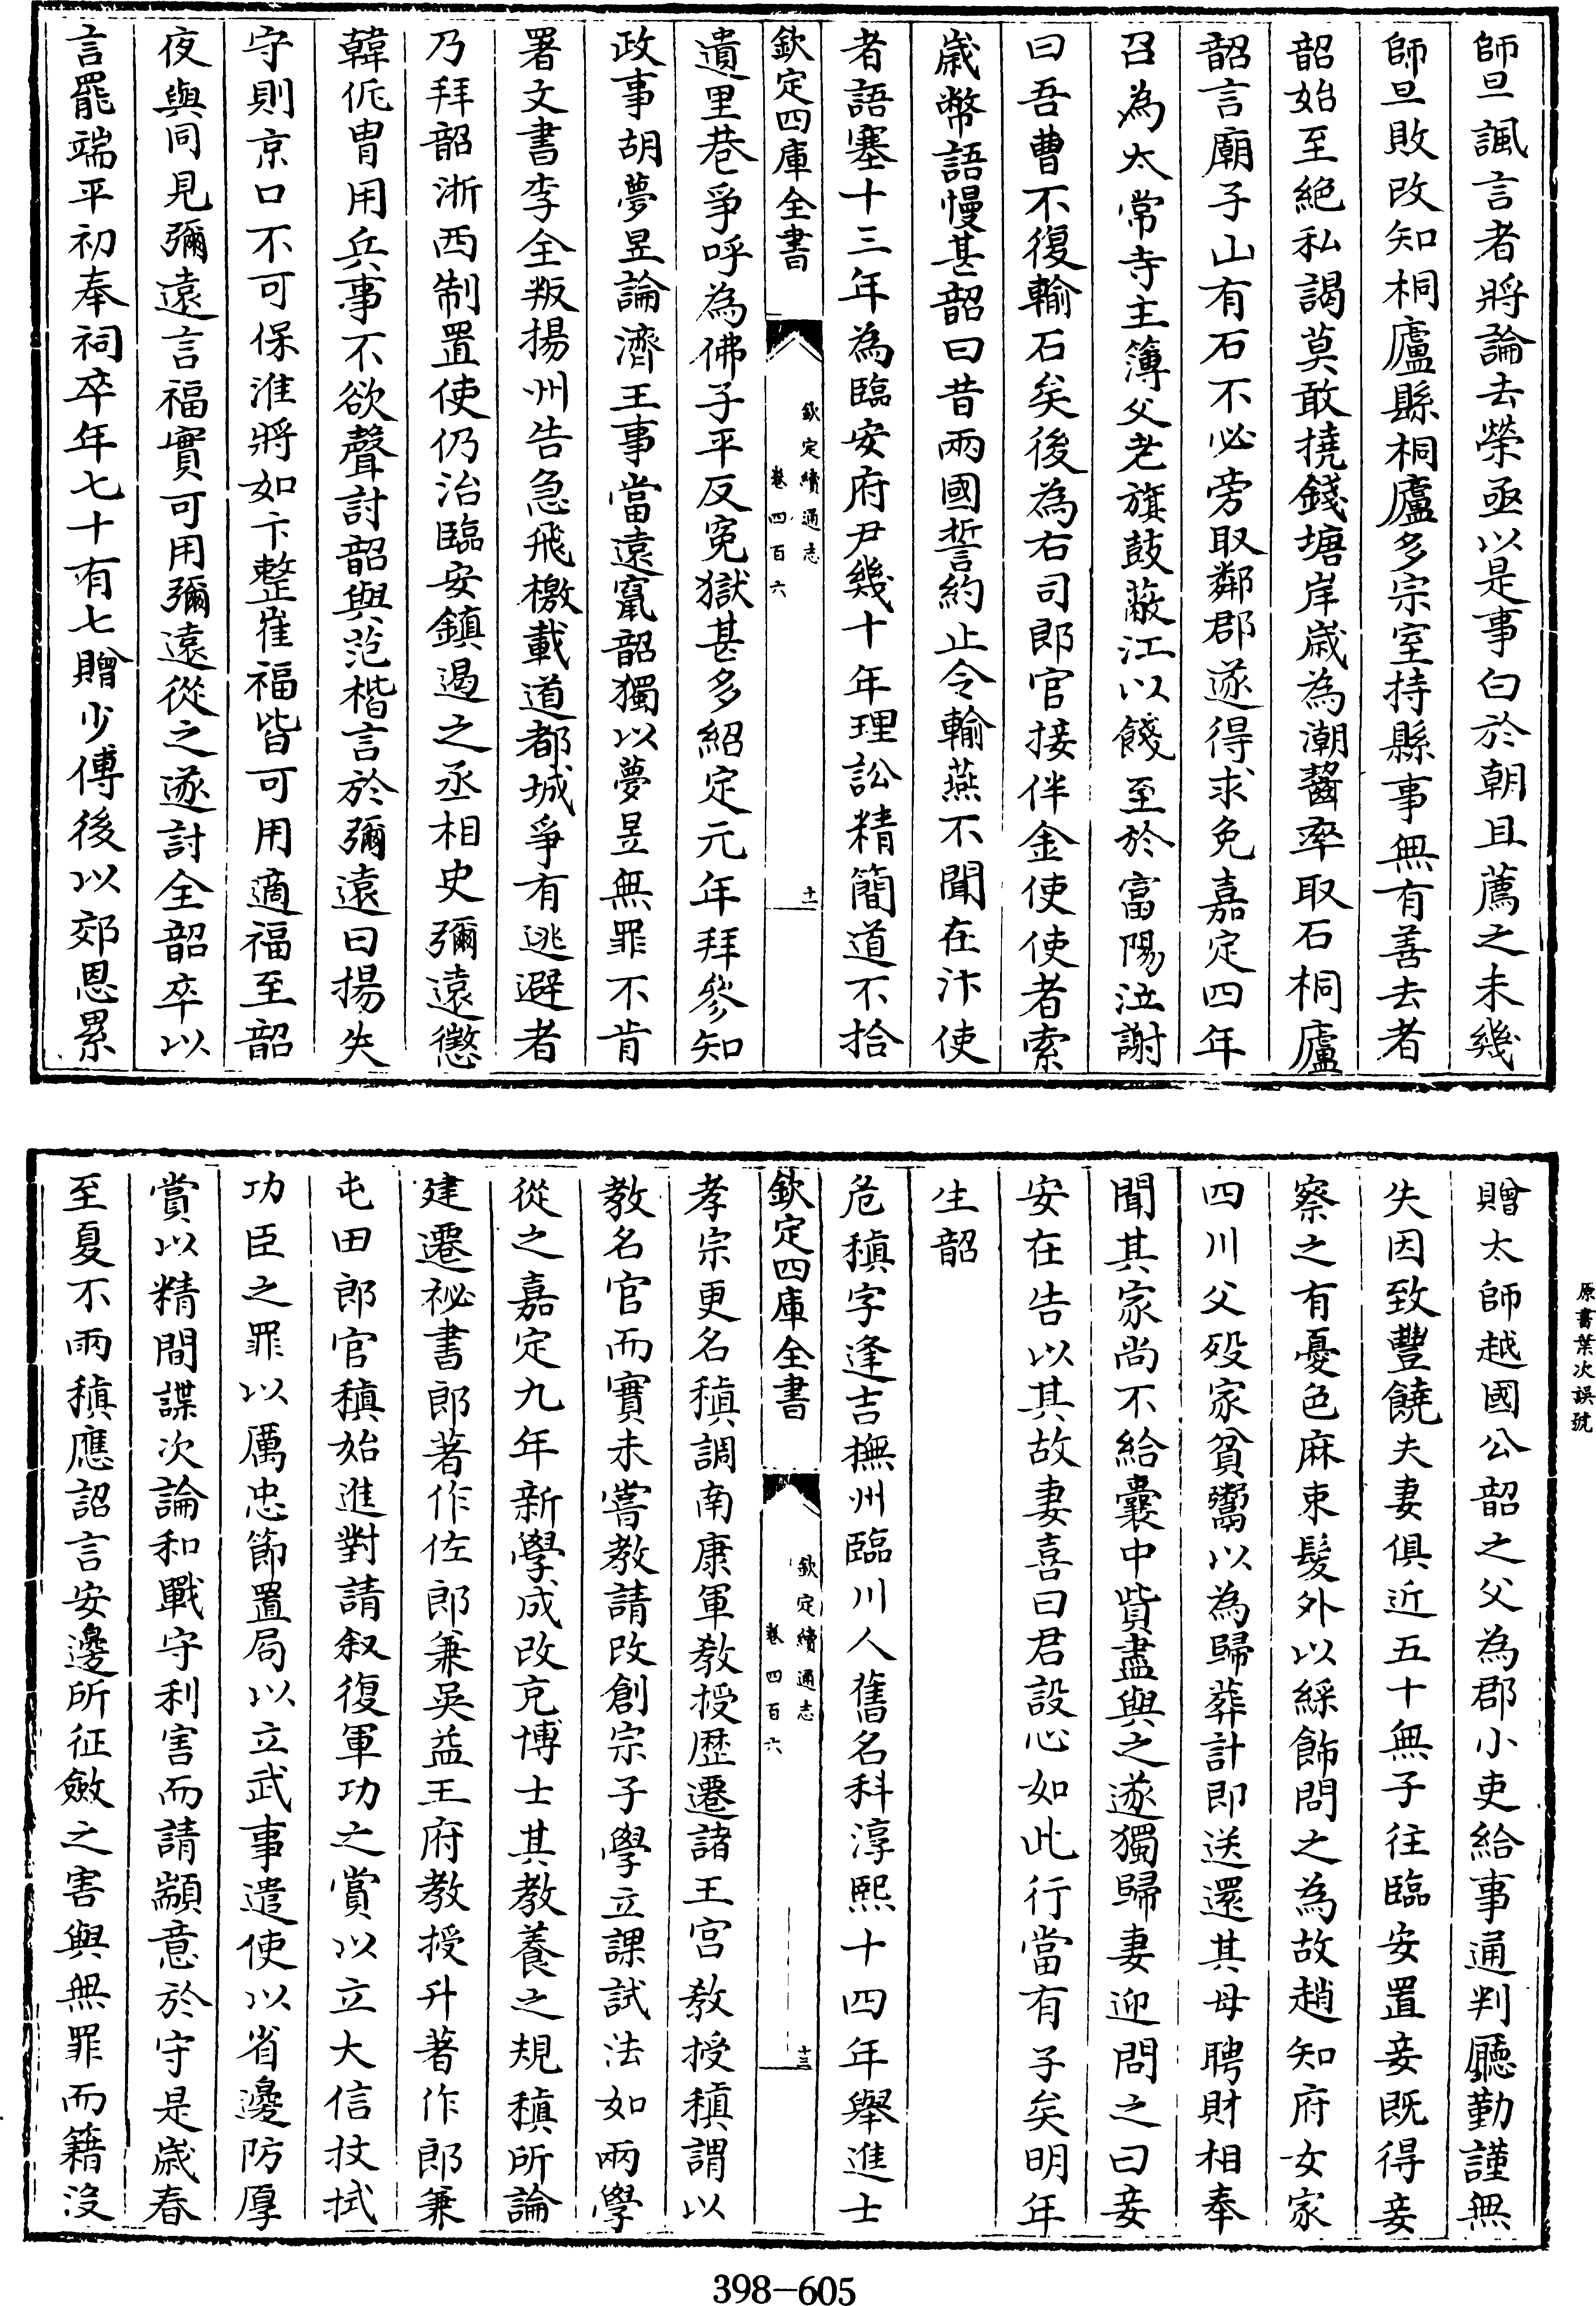 師旦諷言者將論去榮亟以是事白於朝且薦之未幾
師旦敗改知桐廬縣桐廬多宗室持縣事無有善去者
韶始至絕私謁莫敢撓錢塘岸歲為潮齧率取石桐廬
韶言廟子山有石不必旁取鄰郡遂得求免嘉定四年
召為太常寺主簿父老旗鼓蔽江以餞至於富陽泣謝
曰吾曹不復輸石矣後為右司郎官接伴金使使者索
歲幣語慢甚韶曰昔兩國誓約止令輸燕不聞在汴使
者語塞十三年為臨安府尹幾十年理訟精簡道不拾
欽定四庫全書
欽定續通志
卷四百六
十一
遺里巷爭呼為佛子平反冤獄甚多紹定元年拜參知
政事胡夢昱論濟王事當遠竄韶獨以夢昱無罪不肯
署文書李全叛揚州告急飛檄載道都城爭有逃避者
乃拜韶浙西制置使仍治臨安鎮遏之丞相史彌遠懲
韓侂胄用兵事不欲聲討韶與范楷言於彌遠曰揚失
守則京口不可保淮將如卞整崔福皆可用適福至韶
夜與同見彌遠言福實可用彌遠從之遂討全韶卒以
言罷端平初奉祠卒年七十有七贈少傅後以郊恩累
贈太師越國公韶之父為郡小吏給事通判廳勤謹無
失因致豐饒夫妻俱近五十無子往臨安置妾既得妾
察之有憂色麻束髮外以綵飾問之為故趙知府女家
四川父歿家貧鬻以為歸葬計即送還其母聘財相奉
聞其家尚不給囊中貲盡與之遂獨歸妻迎問之曰妾
安在告以其故妻喜曰君設心如此行當有子矣明年
生韶
危稹字逢吉撫州臨川人舊名科淳熙十四年舉進士
欽定四庫全書
欽定續通志
卷四百六
十三
孝宗更名稹調南康軍敎授歷遷諸王宮敎授稹謂以
教名官而實未嘗教請改創宗子學立課試法如兩學
從之嘉定九年新學成改充博士其教養之規稹所論
建遷祕書郎著作佐郎兼吳益王府教授升著作郎兼
屯田郎官稹始進對請叙復軍功之賞以立大信扙拭
功臣之罪以厲忠節置局以立武事遣使以省邊防厚
賞以精間諜次論和戰守利害而請顓意於守是歲春
至夏不雨稹應詔言安邊所征斂之害與無罪而籍沒
原書葉次誤號
398-605